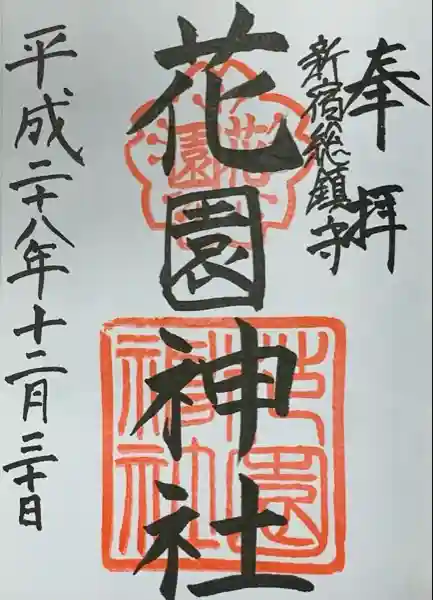 奉拝
新宿総鎮守
花園神社
花園
花園神社
平成二十八年十二月三十日